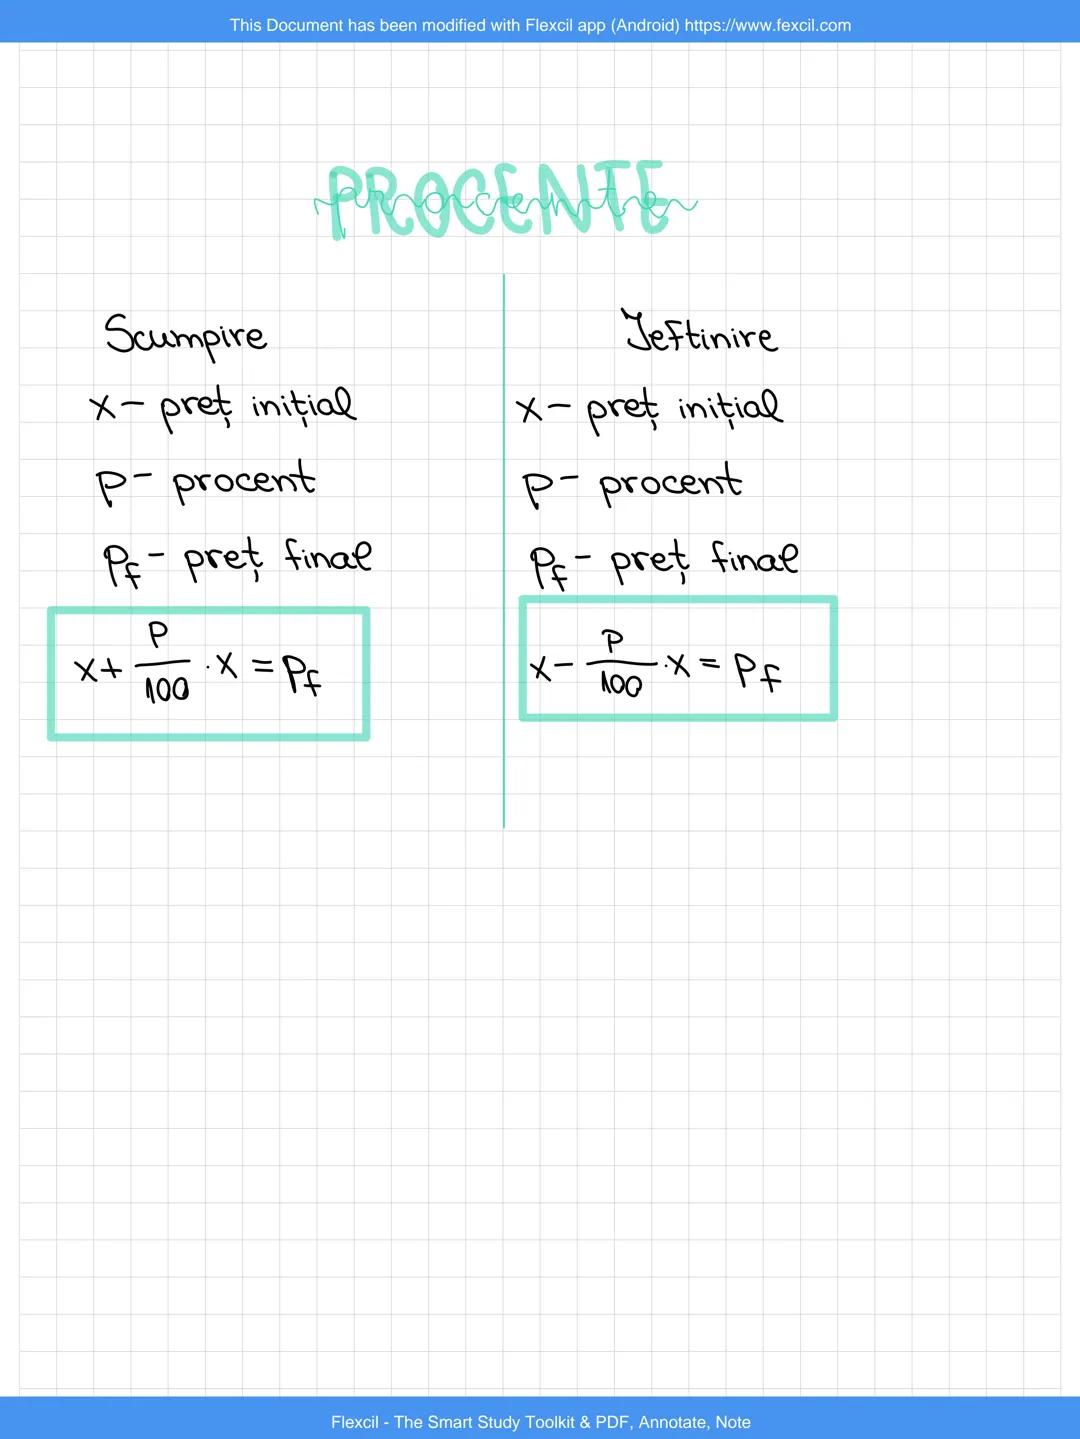 This Document has been modified with Flexcil app (Android) https://www.fexcil.com
PROCENTE
procente
Scumpire
x- preț inițial
p- procent
Pf- preț final
x+ P/100 ·x = Pf
Ieftinire
x- preț inițial
p- procent
Pf- preț final
x- P/100 ·x = Pf
Flexcil - The Smart Study Toolkit & PDF, Annotate, Note